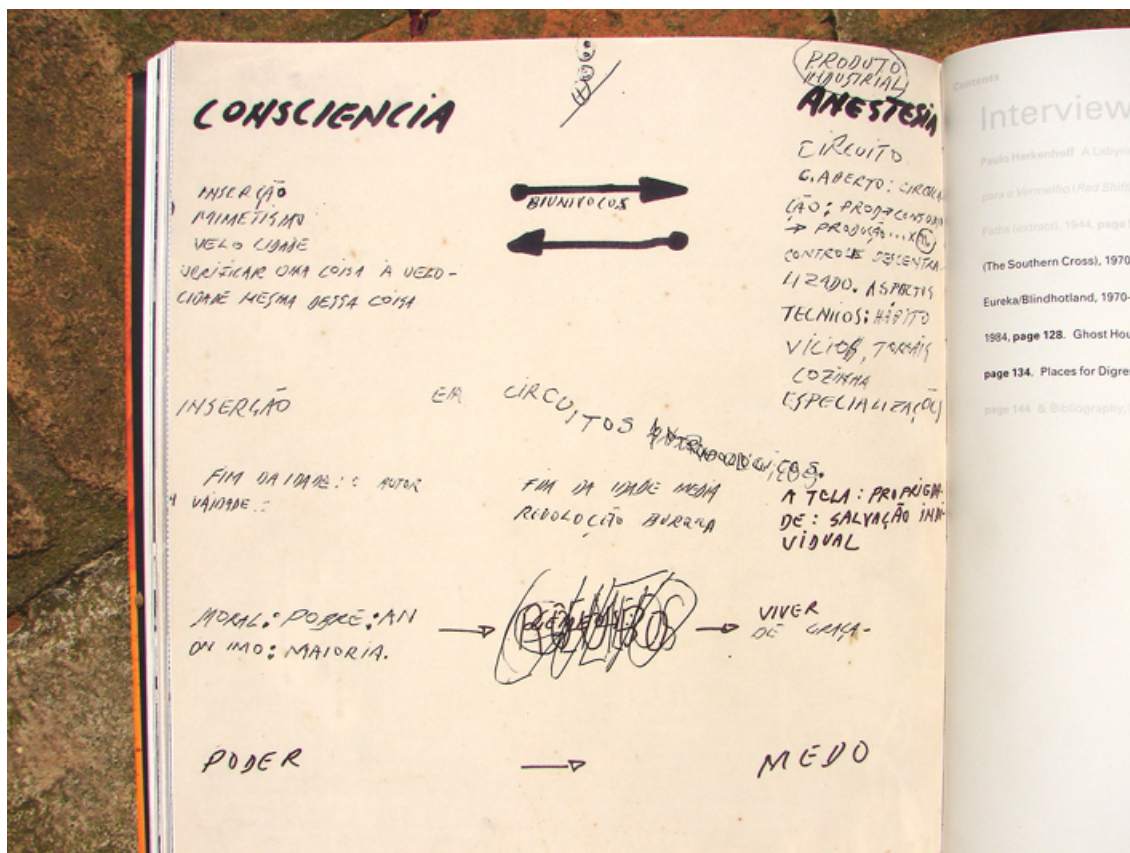 PRODUTO
INDUSTRIAL
CONSCIENCIA
ANESTESIA
INSERÇÃO
MIMETISMO
VELOCIDADE
VERIFICAR UMA COISA À VELO-
CIDADE MESMA DESSA COISA
BIUNIVOCOS
CIRCUITO
C. ABERTO: CIRCULA
ÇÃO: PROD→CONSUMO
→ PRODUÇÃO...X
CONTROLE DESCENTRA
LIZADO. ASPECTOS
TECNICOS: HÁBITO
VÍCIO, TORNAIS
COZINHA
ESPECIALIZAÇÕES
INSERÇÃO EM CIRCUITOS
FIM DA IDADE: : AUTOR
VAIDADE.:
FIM DA IDADE MEDIA
REVOLUÇÃO BURGUESA
A TELA: PROPRIEDA-
DE: SALVAÇÃO INDI-
VIDUAL
MORAL: POBRE: AN
ONIMO: MAIORIA.
VIVER
DE GRAÇA-
PODER → MEDO
Contents
Interview
Paulo Herkenhoff A Labyri
para o Vermelho (Red Shift)
Paths (extract), 1944, page
(The Southern Cross), 1970
Eureka/Blindhotland, 1970-
1984, page 128. Ghost Hou
page 134. Places for Digre
page 144 & Bibliography,